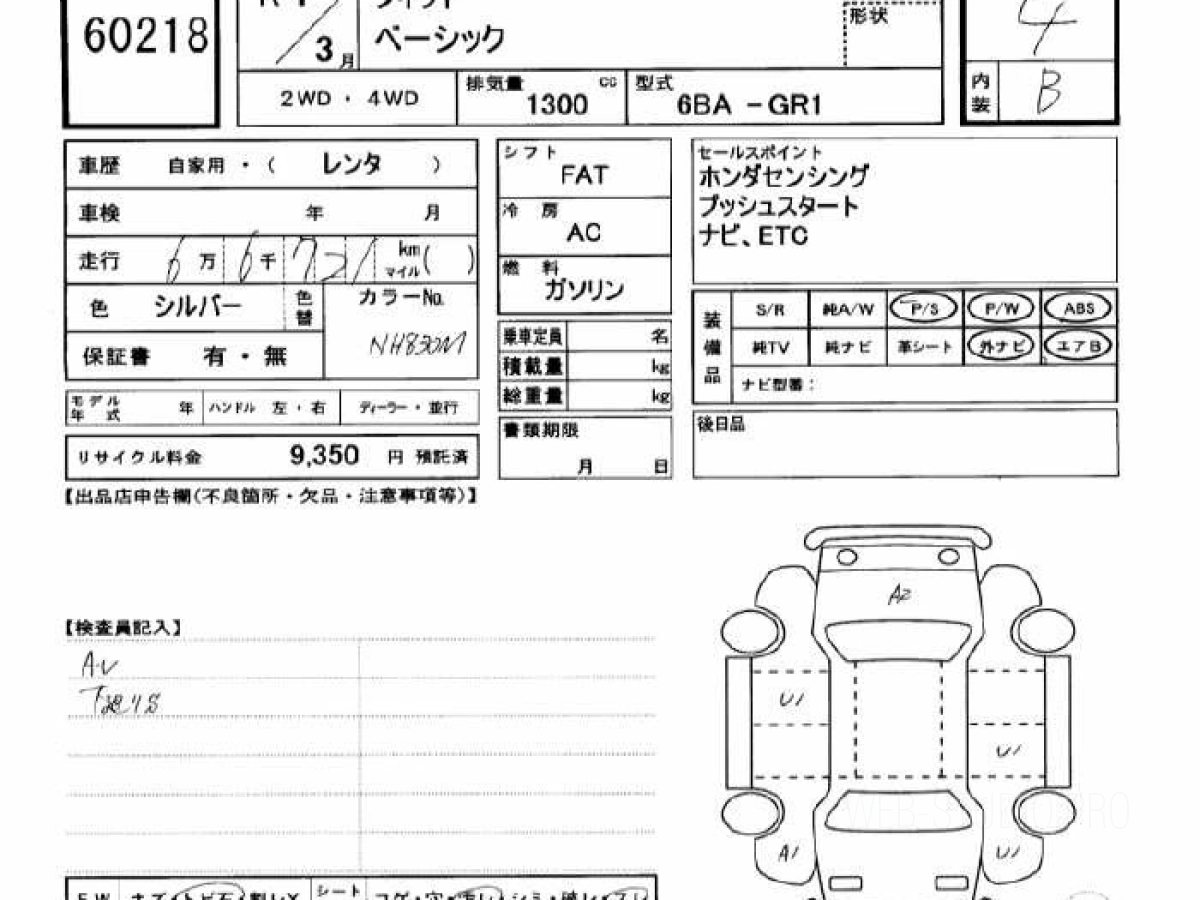 60218
3月
ベーシック
形状
4
2WD ・ 4WD
排気量 cc
1300
型式
6BA -GR1
内装
B
車歴 自家用 ・ ( レンタ )
車検 年 月
走行 6万 6千 721 km マイル ( )
色 シルバー
色替
カラーNo.
NH830M
保証書 有 ・ 無
モデル年式 年 ハンドル 左 ・ 右 ディーラー ・ 並行
リサイクル料金 9,350 円 預託済
シフト
FAT
冷 房
AC
燃 料
ガソリン
乗車定員 名
積載量 kg
総重量 kg
書類期限
月 日
セールスポイント
ホンダセンシング
プッシュスタート
ナビ、ETC
装備品
S/R 純A/W P/S P/W ABS
純TV 純ナビ 革シート 外ナビ エアB
ナビ型番：
後日品
【出品店申告欄(不良箇所・欠品・注意事項等)】
【検査員記入】
A2
U1
U1
A1
U1